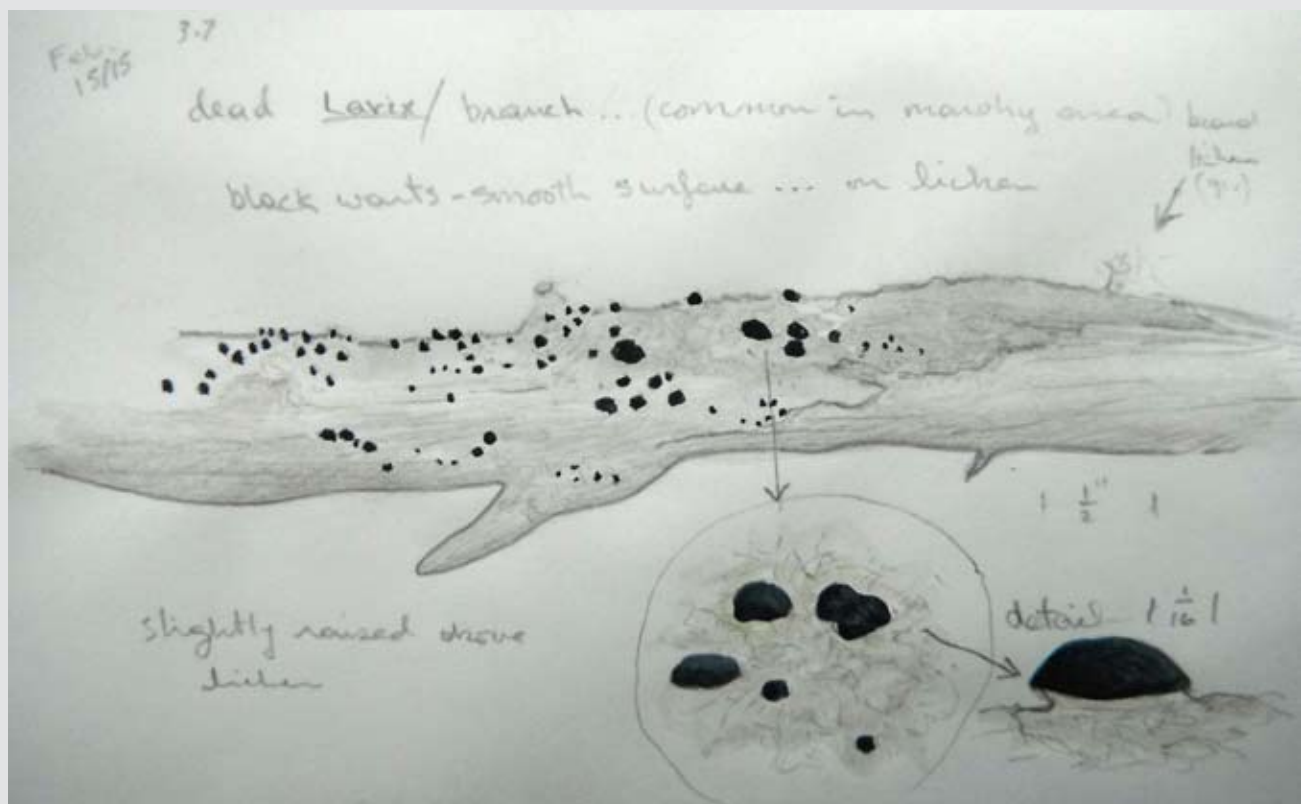 3.7
Feb.
15/15
dead Larix/ branch .. (common in marshy area)
beard
lichen
black warts - smooth surface ... on lichen
1/2"
slightly raised above
lichen
detail 1/16